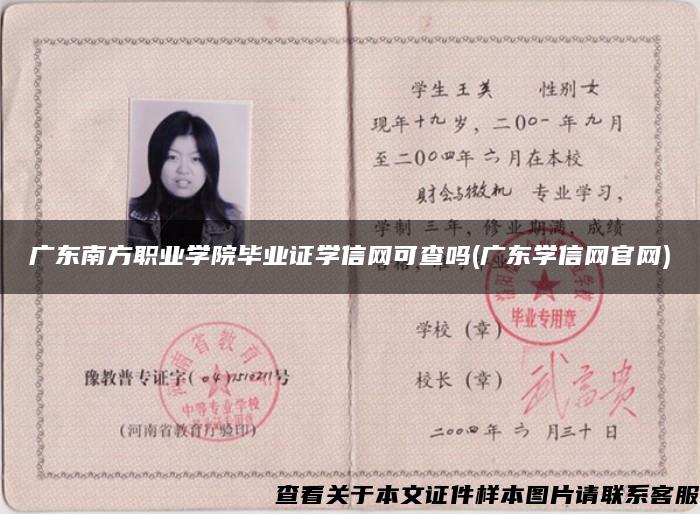 学生王英 性别女
现年十九岁，二00一年九月
至二00四年六月在本校
财会与微机 专业学习，
学制三年，修业期满，成绩
广东南方职业学院毕业证学信网可查吗(广东学信网官网)
毕业专用章
学校（章）
河南省教育厅
豫教普专证字( 号
中等专业学校
校长（章）武富贵
(河南省教育厅验印)
二00四年六月三十日
查看关于本文证件样本图片请联系客服